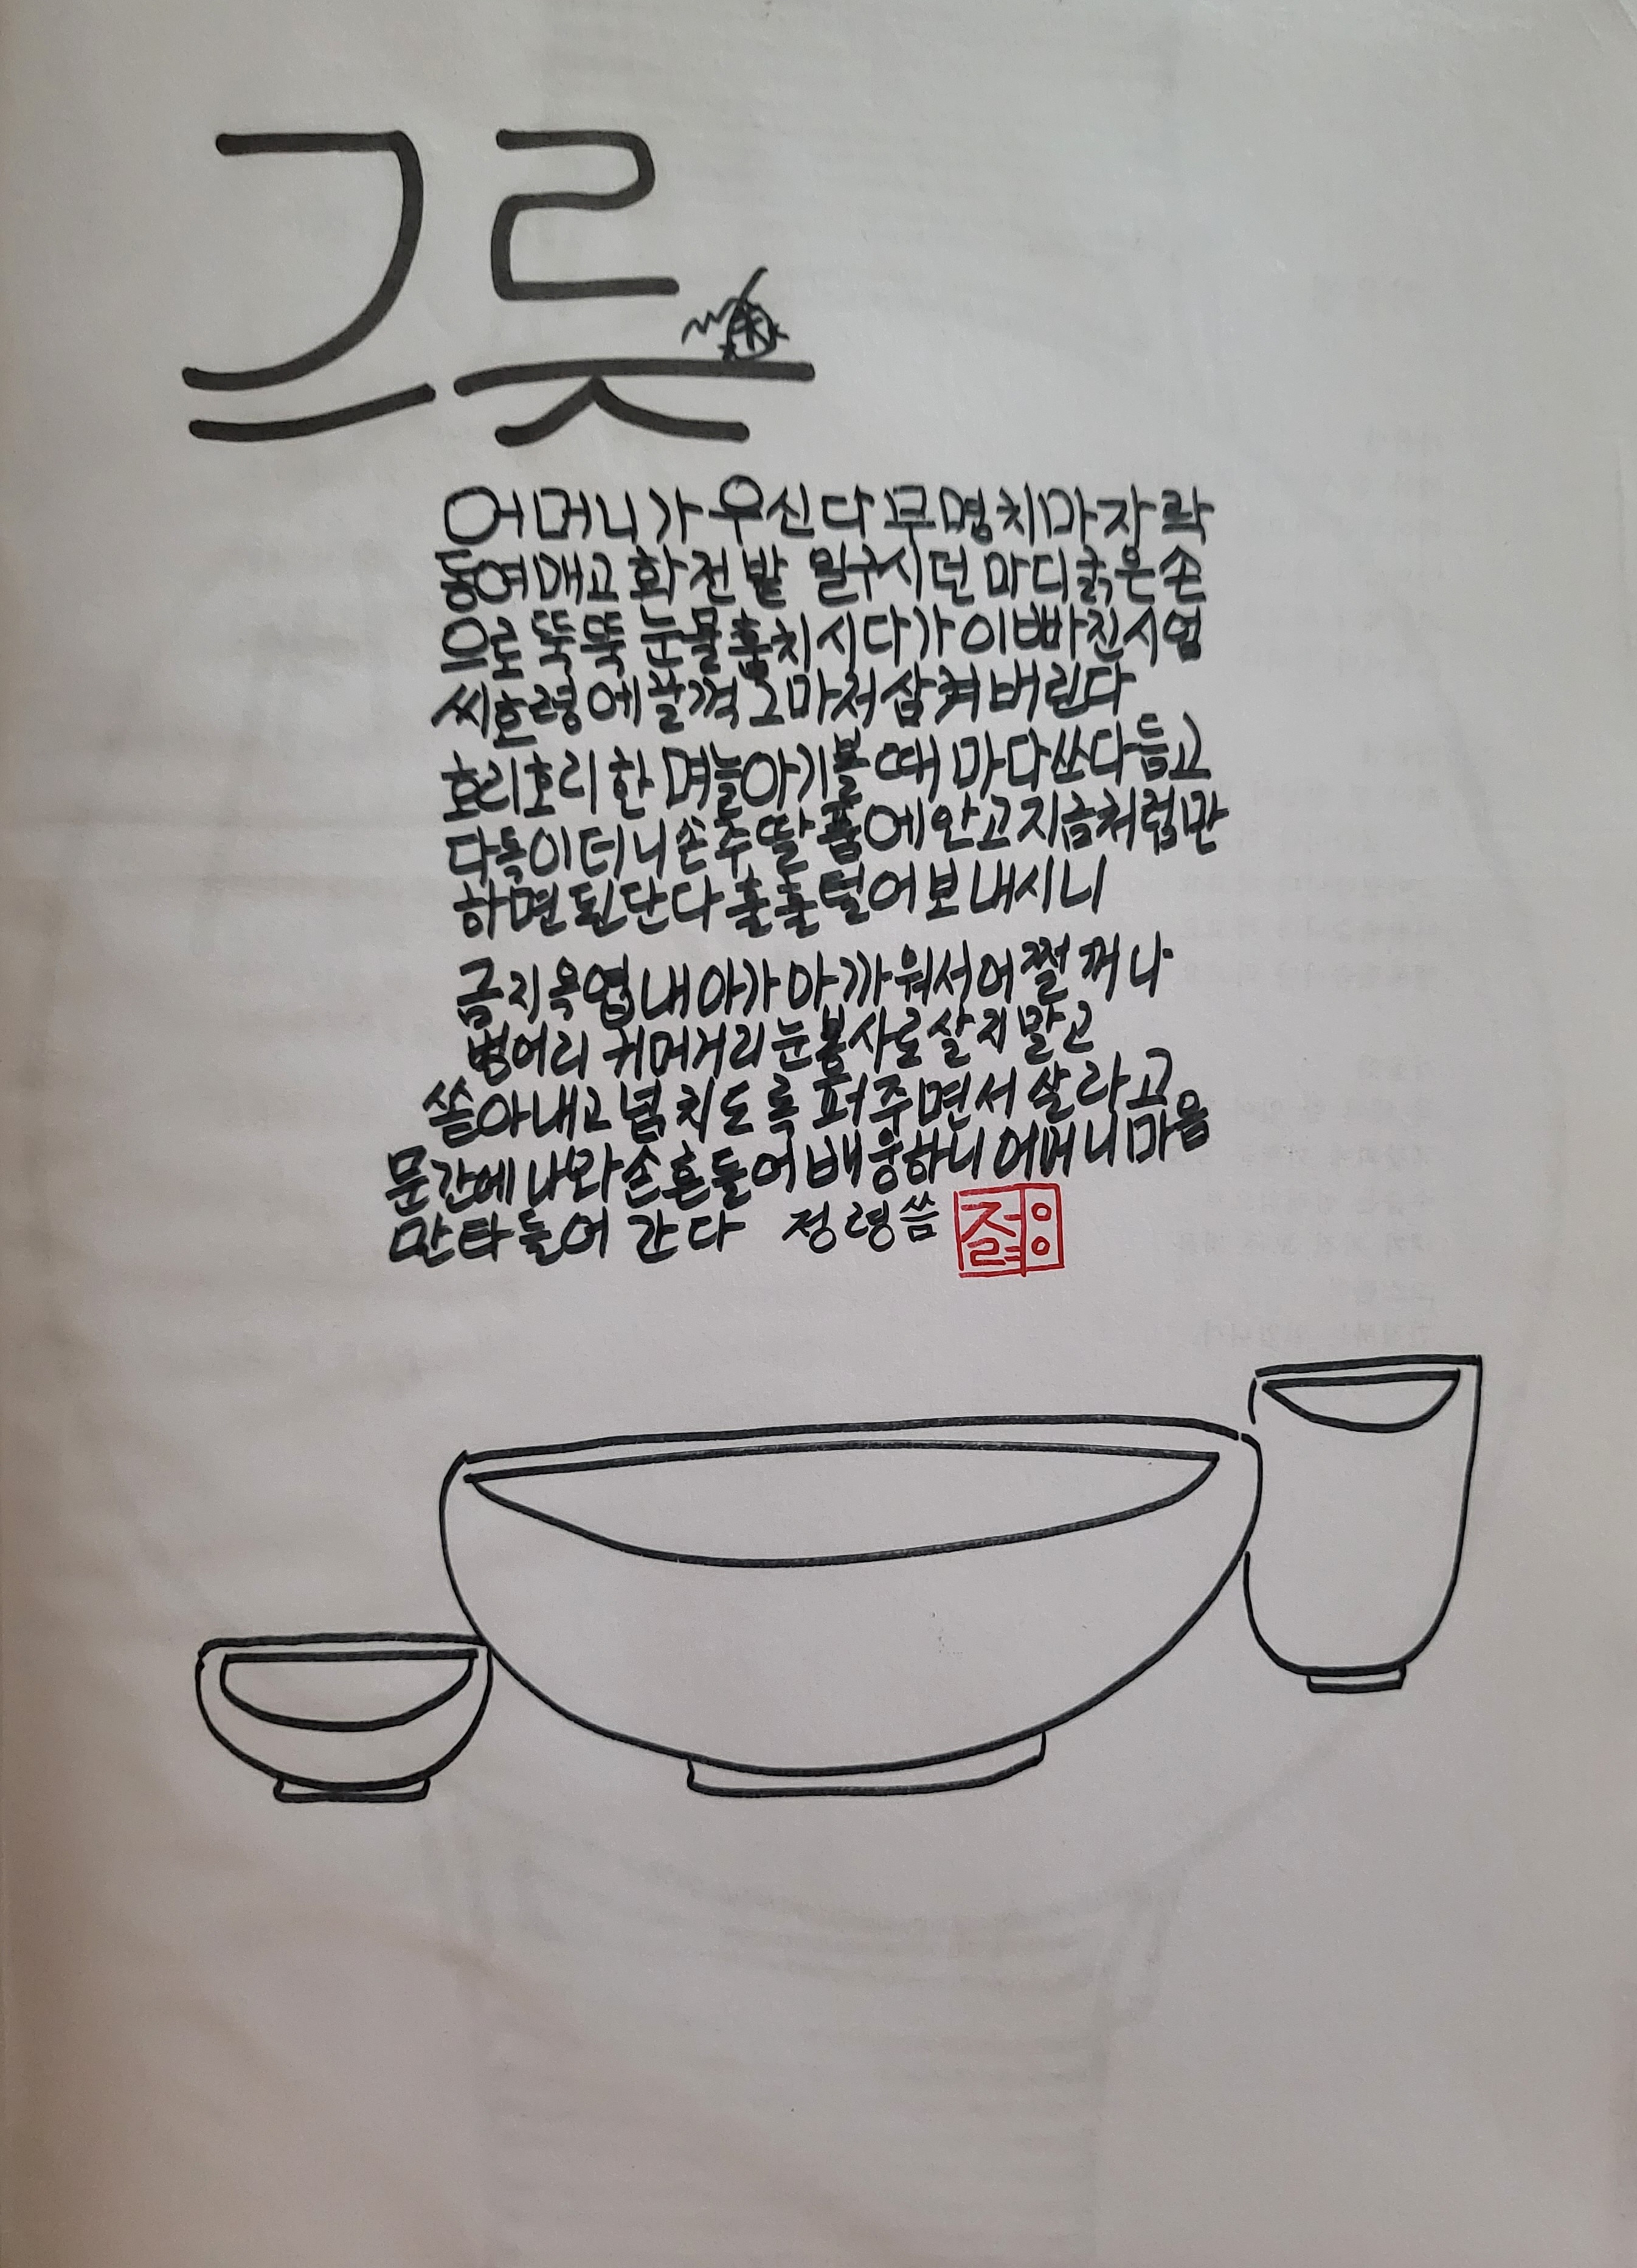 그릇
어머니가 우신다 무명치마자락
동여매고 화전밭 일구시던 마디굵은손
으로 뚝뚝 눈물훔치시다가 이빠진사엄
씨호령에꿀꺽 그마저삼켜버린다
호리호리한 며늘아기볼때마다쓰다듬고
다독이더니손주딸품에안고지금처럼만
하면된단다 훌훌털어보내시니
금지옥엽내아가아까워서어쩔꺼나
벙어리 귀머거리눈봉사로살지말고
쏟아내고넘치도록퍼주면서살라고
문간에나와손흔들어배웅하니어머니마음
만타들어간다 정령씀
정령